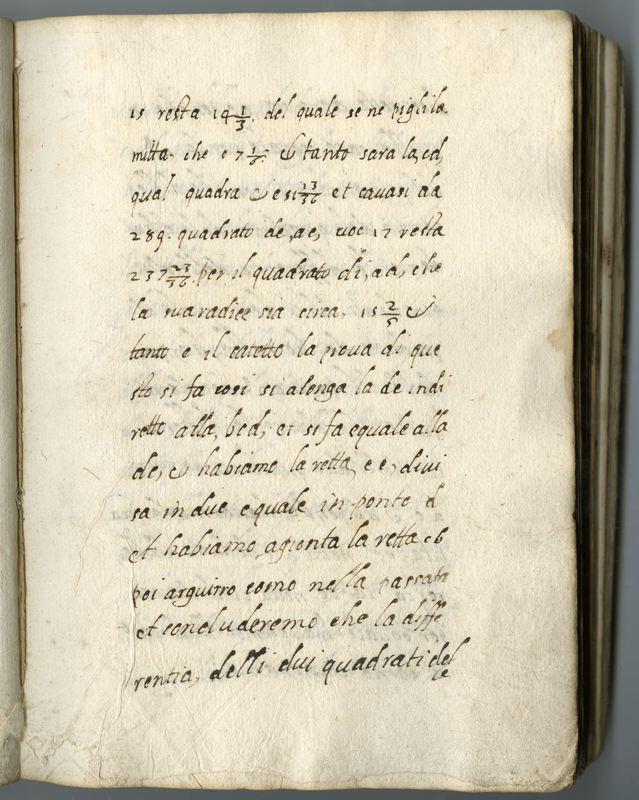 15 resta 14 1/3. del quale se ne piglila
mitta. che e 7 1/6. & tanto sara la, cd,
qual quadra & e 51 13/36 et cavasi da
289. quadrato de, ac, voc 17 resta
237 23/36. per il quadrato di, ad, che
la sua radice sia circa. 15 2/5 &
tanto e il catetto la prova di que
sto si fa cosi si alonga la de indi
retto alla, bcd, et si fa equale alla
de, & habiamo la retta, ec, divi
sa in due equale in ponto d
et habiamo agionta la retta cb
poi arguirro como nella passata
et concluderemo che la diffe
rentia, delli dui quadrati del
le